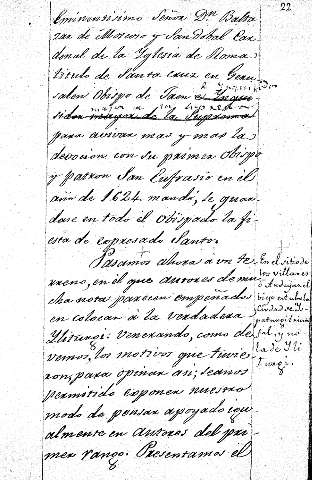 22
Eminentisimo Señor Dn. Balta
zar de Moscoso y Sandobal Car
denal de la Yglesia de Roma
titulo de Santa Cruz en Geru
salen Obispo de Jaen
para avivar mas y mas la
devocion con su primer Obispo
y patron San Eufrasio en el
año de 1624. mandó, se guar
dase en todo el Obispado la fi
esta de expresado Santo.
Pasamos ahora a un te
rreno, en el que autores de mu
cha nota parecen empeñados
en colocar à la verdadera
Yliturgi. Venerando, como de
vemos, los motivos que tuvie
ron, para opinar asi; seanos
permitido exponer nuestro
modo de pensar apoyado igu
almente en autores del pri
mer rango. Presentamos el
En el sitio de
los villares
ò Andujar el
viejo estubo la
Ciudad de Yp
aturgi triun
fal, y no
la de Yli
turgi.